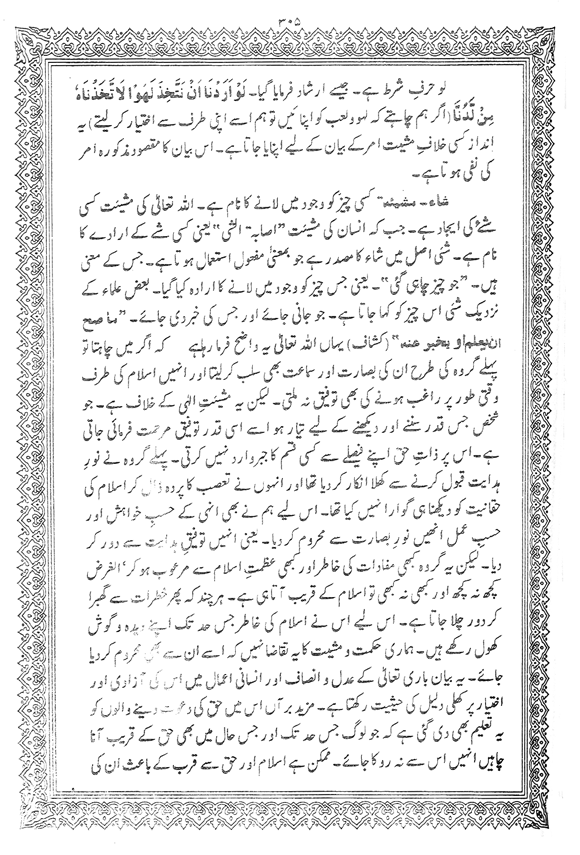 ۳۰۵
لو حرفِ شرط ہے۔ جیسے ارشاد فرمایا گیا۔ لَوْ اَرَدْنَا اَنْ نَتَّخِذَ لَهْوًا لَا تَّخَذْنَاهُ
مِنْ لَّدُنَّا (اگر ہم چاہتے کہ لہو و لعب کو اپنائیں تو ہم اسے اپنی طرف سے اختیار کر لیتے) یہ
انداز کسی خلافِ مشیت امر کے بیان کے لیے اپنایا جاتا ہے۔ اس بیان کا مقصود مذکورہ امر
کی نفی ہوتا ہے۔
شاء۔ مشیئتہ کسی چیز کو وجود میں لانے کا نام ہے۔ اللہ تعالیٰ کی مشیئت کسی
شئے کی ایجاد ہے۔ جب کہ انسان کی مشیئت "اصابۃ الشئی" یعنی کسی شے کے ارادے کا
نام ہے۔ شئی اصل میں شاء کا مصدر ہے جو بمعنیٰ مفعول استعمال ہوتا ہے۔ جس کے معنی
ہیں۔ "جو چیز چاہی گئی"۔ یعنی جس چیز کو وجود میں لانے کا ارادہ کیا گیا۔ بعض علماء کے
نزدیک شئی اس چیز کو کہا جاتا ہے۔ جو جانی جائے اور جس کی خبر دی جائے۔ "ما صح
ان یعلم او یخبر عنہ" (کشاف) یہاں اللہ تعالیٰ یہ واضح فرما رہا ہے کہ اگر میں چاہتا تو
پہلے گروہ کی طرح ان کی بصارت اور سماعت بھی سلب کر لیتا اور انہیں اسلام کی طرف
وقتی طور پر راغب ہونے کی بھی توفیق نہ ملتی۔ لیکن یہ مشیئتِ الٰہی کے خلاف ہے۔ جو
شخص جس قدر سننے اور دیکھنے کے لیے تیار ہو اسے اسی قدر توفیق مرحمت فرمائی جاتی
ہے۔ اس پر ذاتِ حق اپنے فیصلے سے کسی قسم کا جبر وارد نہیں کرتی۔ پہلے گروہ نے نورِ
ہدایت قبول کرنے سے کھلا انکار کر دیا تھا اور انہوں نے تعصب کا پردہ ڈال کر اسلام کی
حقانیت کو دیکھنا ہی گوارا نہیں کیا تھا۔ اس لیے ہم نے بھی انہی کے حسبِ خواہش اور
حسبِ عمل انھیں نورِ بصارت سے محروم کر دیا۔ یعنی انہیں توفیقِ ہدایت سے دور کر
دیا۔ لیکن یہ گروہ کبھی مفادات کی خاطر اور کبھی عظمتِ اسلام سے مرعوب ہو کر، الغرض
کچھ نہ کچھ اور کبھی نہ کبھی تو اسلام کے قریب آتا ہی ہے۔ ہر چند کہ پھر خطرات سے گھبرا
کر دور چلا جاتا ہے۔ اس لیے اس نے اسلام کی خاطر جس حد تک اپنے دیدہ و گوش
کھول رکھے ہیں۔ ہماری حکمت و مشیت کا یہ تقاضا نہیں کہ اسے ان سے بھی محروم کر دیا
جائے۔ یہ بیان باری تعالیٰ کے عدل و انصاف اور انسانی اعمال میں اس کی آزادی اور
اختیار پر کھلی دلیل کی حیثیت رکھتا ہے۔ مزید برآں اس میں حق کی دعوت دینے والوں کو
یہ تعلیم بھی دی گئی ہے کہ جو لوگ جس حد تک اور جس حال میں بھی حق کے قریب آنا
چاہیں انہیں اس سے نہ روکا جائے۔ ممکن ہے اسلام اور حق سے قرب کے باعث ان کی